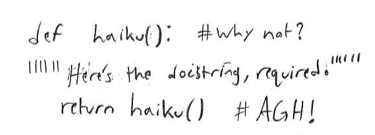 def haiku(): #Why not?
"""Here's the docstring, required."""
return haiku() #AGH!